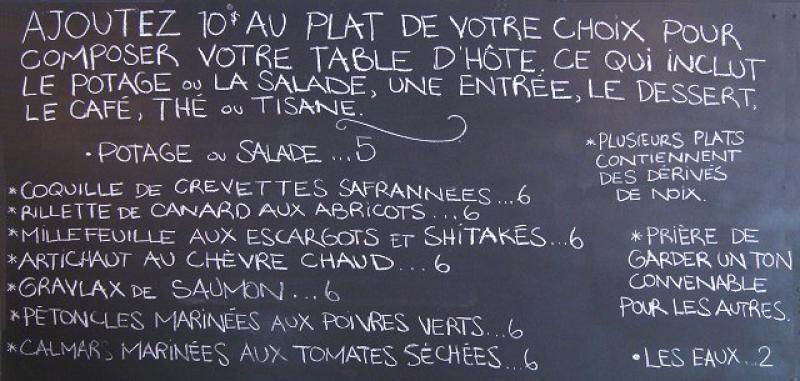 AJOUTEZ 10$ AU PLAT DE VOTRE CHOIX POUR
COMPOSER VOTRE TABLE D'HÔTE. CE QUI INCLUT
LE POTAGE OU LA SALADE, UNE ENTRÉE, LE DESSERT,
LE CAFÉ, THÉ OU TISANE.
• POTAGE OU SALADE...5
*COQUILLE DE CREVETTES SAFRANNÉES...6
*RILLETTE DE CANARD AUX ABRICOTS...6
*MILLEFEUILLE AUX ESCARGOTS ET SHITAKÉS...6
*ARTICHAUT AU CHÈVRE CHAUD...6
*GRAVLAX DE SAUMON...6
*PÉTONCLES MARINÉES AUX POIVRES VERTS...6
*CALMARS MARINÉES AUX TOMATES SÉCHÉES...6
*PLUSIEURS PLATS
CONTIENNENT
DES DÉRIVÉS
DE NOIX.
*PRIÈRE DE
GARDER UN TON
CONVENABLE
POUR LES AUTRES.
• LES EAUX...2